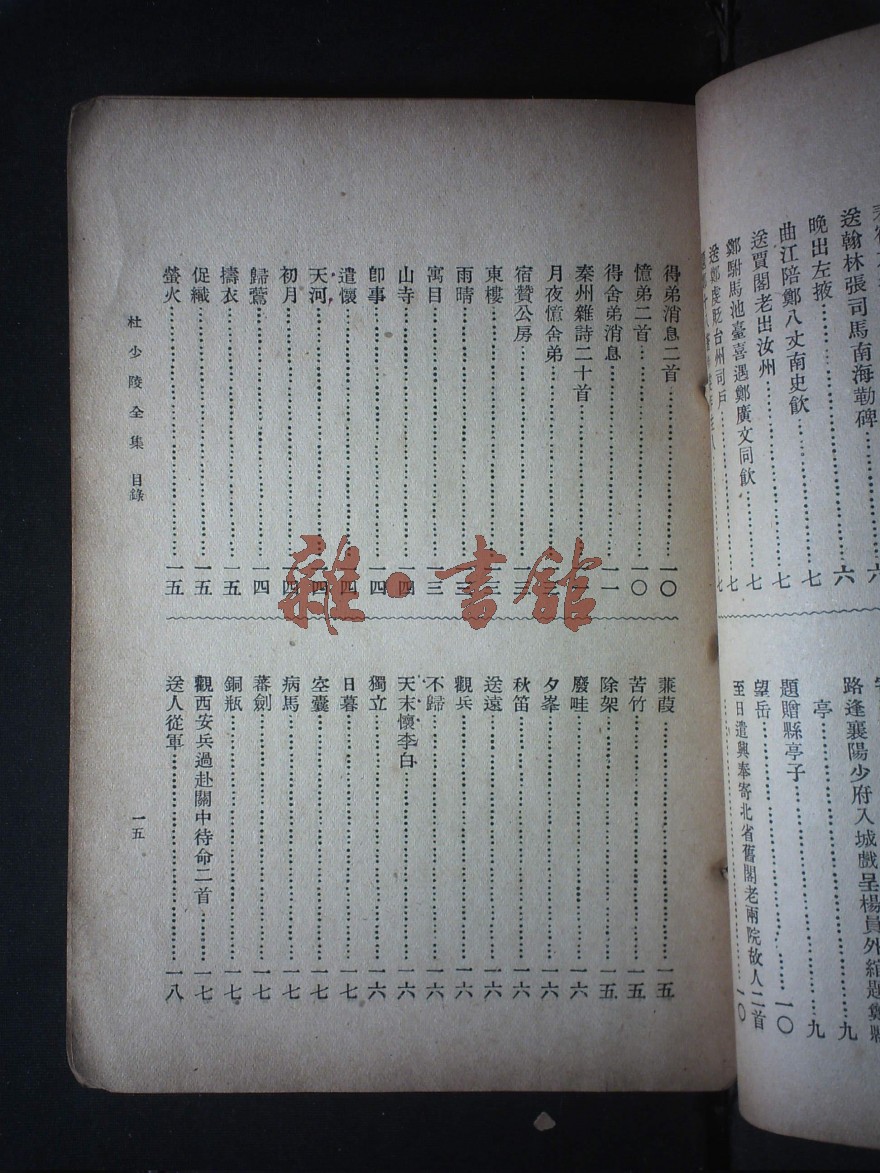 送翰林張司馬南海勒碑……六
晚出左掖……七
曲江陪鄭八丈南史飲……七
送賈閣老出汝州……七
鄭駙馬池臺喜遇鄭廣文同飲……七
送鄭虔貶台州司戶……七
路逢襄陽少府入城戲呈楊員外綰題鄭縣……九
亭……九
題贈縣亭子……一〇
望岳……
至日遣興奉寄北省舊閣老兩院故人二首……一〇
得弟消息二首……一〇
憶弟二首……一〇
得舍弟消息……一一
秦州雜詩二十首……一一
月夜憶舍弟……
宿贊公房……一三
東樓……一三
雨晴……一三
寓目……一三
山寺……一四
卽事……一四
遣懷……一四
天河……一四
初月……一四
歸鶯……一四
擣衣……一五
促織……一五
螢火……一五
蒹葭……一五
苦竹……一五
除架……一五
廢畦……一六
夕峯……一六
秋笛……一六
送遠……一六
觀兵……一六
不歸……一六
天末懷李白……一六
獨立……一六
日暮……一七
空囊……一七
病馬……一七
蕃劍……一七
銅瓶……一七
觀西安兵過赴關中待命二首……一七
送人從軍……一八
杜少陵全集 目錄
一五
雜·書館